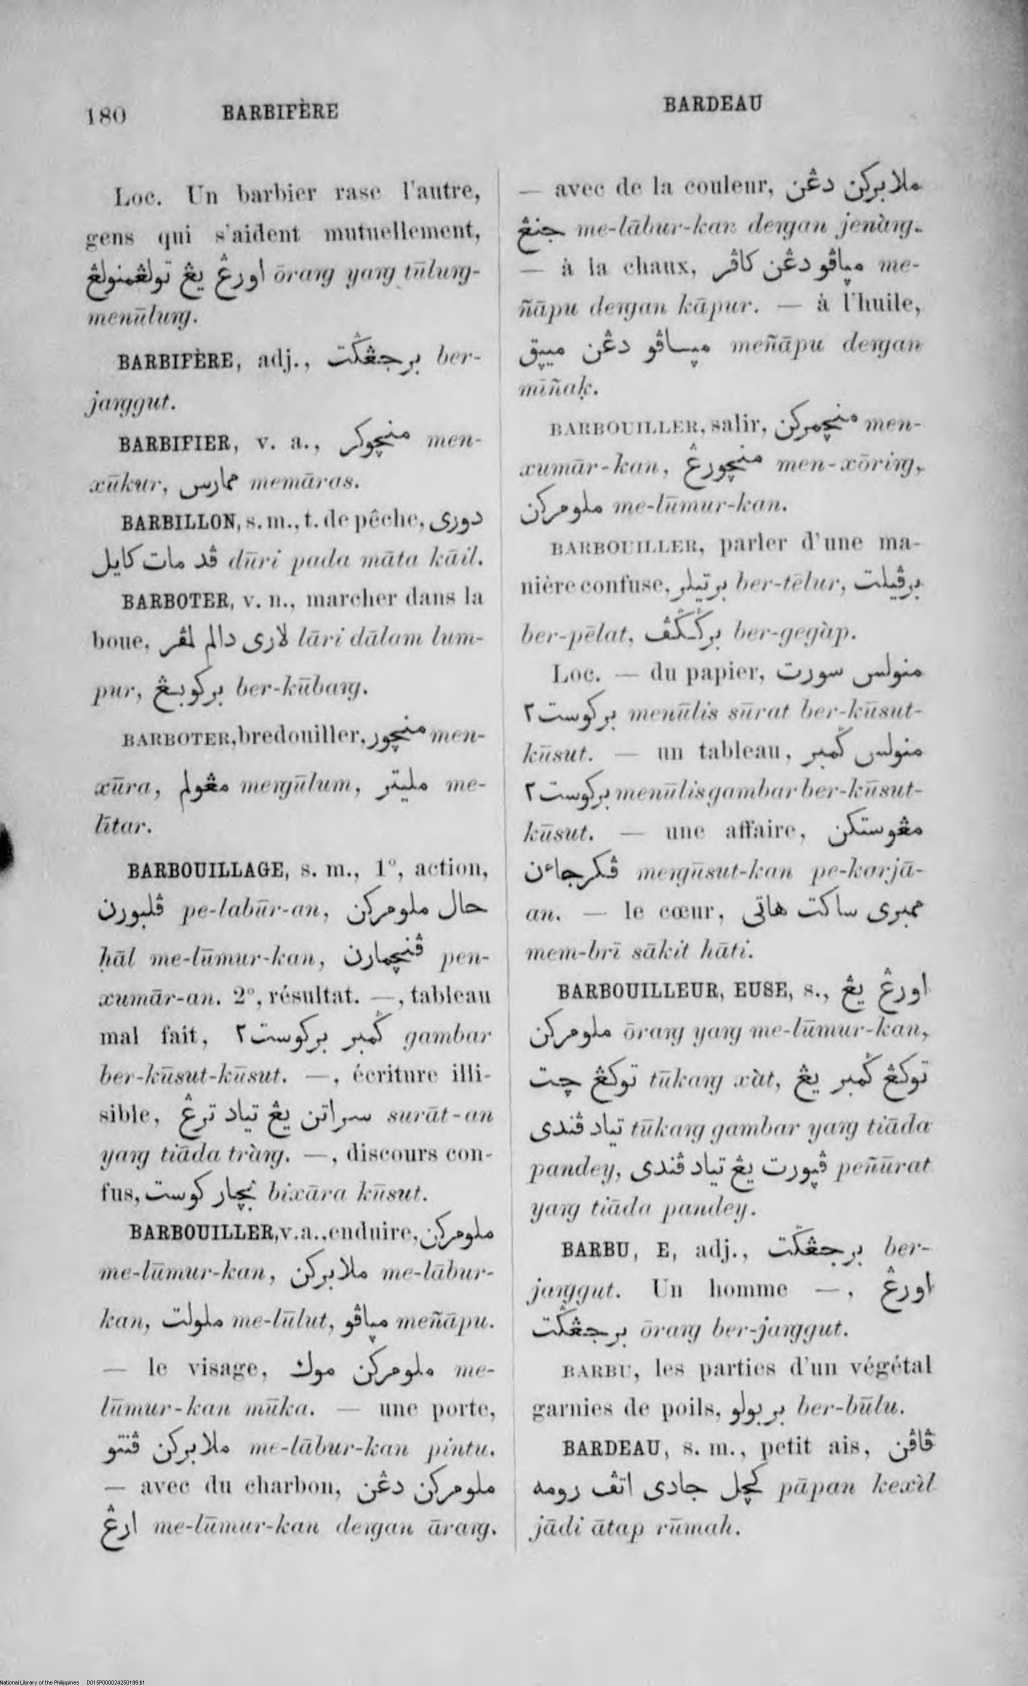 180 BARBIFÈRE BARDEAU
Loc. Un barbier rase l'autre,
gens qui s'aident mutuellement,
اورڠ يڠ تولڠمنولڠ ōraŋ yaŋ tūluŋ-
menūluŋ.
BARBIFÈRE, adj., برجڠݢت ber-
jaŋggut.
BARBIFIER, v. a., منچوكر men-
xūkur, ممارس memāras.
BARBILLON, s. m., t. de pêche, دورى
ڤد مات كايل dūri pada māta kāil.
BARBOTER, v. n., marcher dans la
boue, لارى دالم لمڤر lāri dālam lum-
pur, بركوبڠ ber-kūbaŋ.
BARBOTER, bredouiller, منچور men-
xūra, مڠولم meŋūlum, مليتر me-
lītar.
BARBOUILLAGE, s. m., 1°, action,
ڤلبورن pe-labūr-an, حال ملومركن
ḥāl me-lūmur-kan, ڤنچمارن pen-
xumār-an. 2°, résultat. —, tableau
mal fait, ݢمبر بركوست٢ gambar
ber-kūsut-kūsut. —, écriture illi-
sible, سراتن يڠ تياد ترڠ surāt-an
yaŋ tiāda tràŋ. —, discours con-
fus, بچار كوست bixāra kūsut.
BARBOUILLER, v. a., enduire, ملومركن
me-lūmur-kan, ملابركن me-lābur-
kan, ملولت me-lūlut, مياڤو meñāpu.
— le visage, ملومركن موك me-
lūmur-kan mūka. — une porte,
ملابركن ڤنتو me-lābur-kan pintu.
— avec du charbon, ملومركن دڠن
ارڠ me-lūmur-kan deŋan āraŋ.
— avec de la couleur, ملابركن دڠن
جنڠ me-lābur-kan deŋan jenàŋ.
— à la chaux, مياڤو دڠن كاڤر me-
ñāpu deŋan kāpur. — à l'huile,
مياڤو دڠن ميڽق meñāpu deŋan
mīñaḳ.
BARBOUILLER, salir, منچمركن men-
xumār-kan, منچورڠ men-xōriŋ,
ملومركن me-lūmur-kan.
BARBOUILLER, parler d'une ma-
nière confuse, برتيلر ber-tēlur, برڤيلت
ber-pēlat, برݢݢڤ ber-gegàp.
Loc. — du papier, منولس سورت
بركوست٢ menūlis sūrat ber-kūsut-
kūsut. — un tableau, منولس ݢمبر
بركوست٢ menūlis gambar ber-kūsut-
kūsut. — une affaire, مڠوستكن
ڤكرجاءن meŋūsut-kan pe-karjā-
an. — le cœur, ممبرى ساكت هاتى
mem-brī sākit hāti.
BARBOUILLEUR, EUSE, s., اورڠ يڠ
ملومركن ōraŋ yaŋ me-lūmur-kan,
توكڠ چت tūkaŋ xàt, توكڠ ݢمبر يڠ
تياد ڤندى tūkaŋ gambar yaŋ tiāda
pandey, ڤيورت يڠ تياد ڤندى peñūrat
yaŋ tiāda pandey.
BARBU, E, adj., برجڠݢت ber-
jaŋggut. Un homme —, اورڠ
برجڠݢت ōraŋ ber-jaŋggut.
BARBU, les parties d'un végétal
garnies de poils, بربولو ber-būlu.
BARDEAU, s. m., petit ais, ڤاڤن
كچل جادى اتڤ رومه pāpan kexìl
jādi ātap rūmah.
National Library of the Philippines